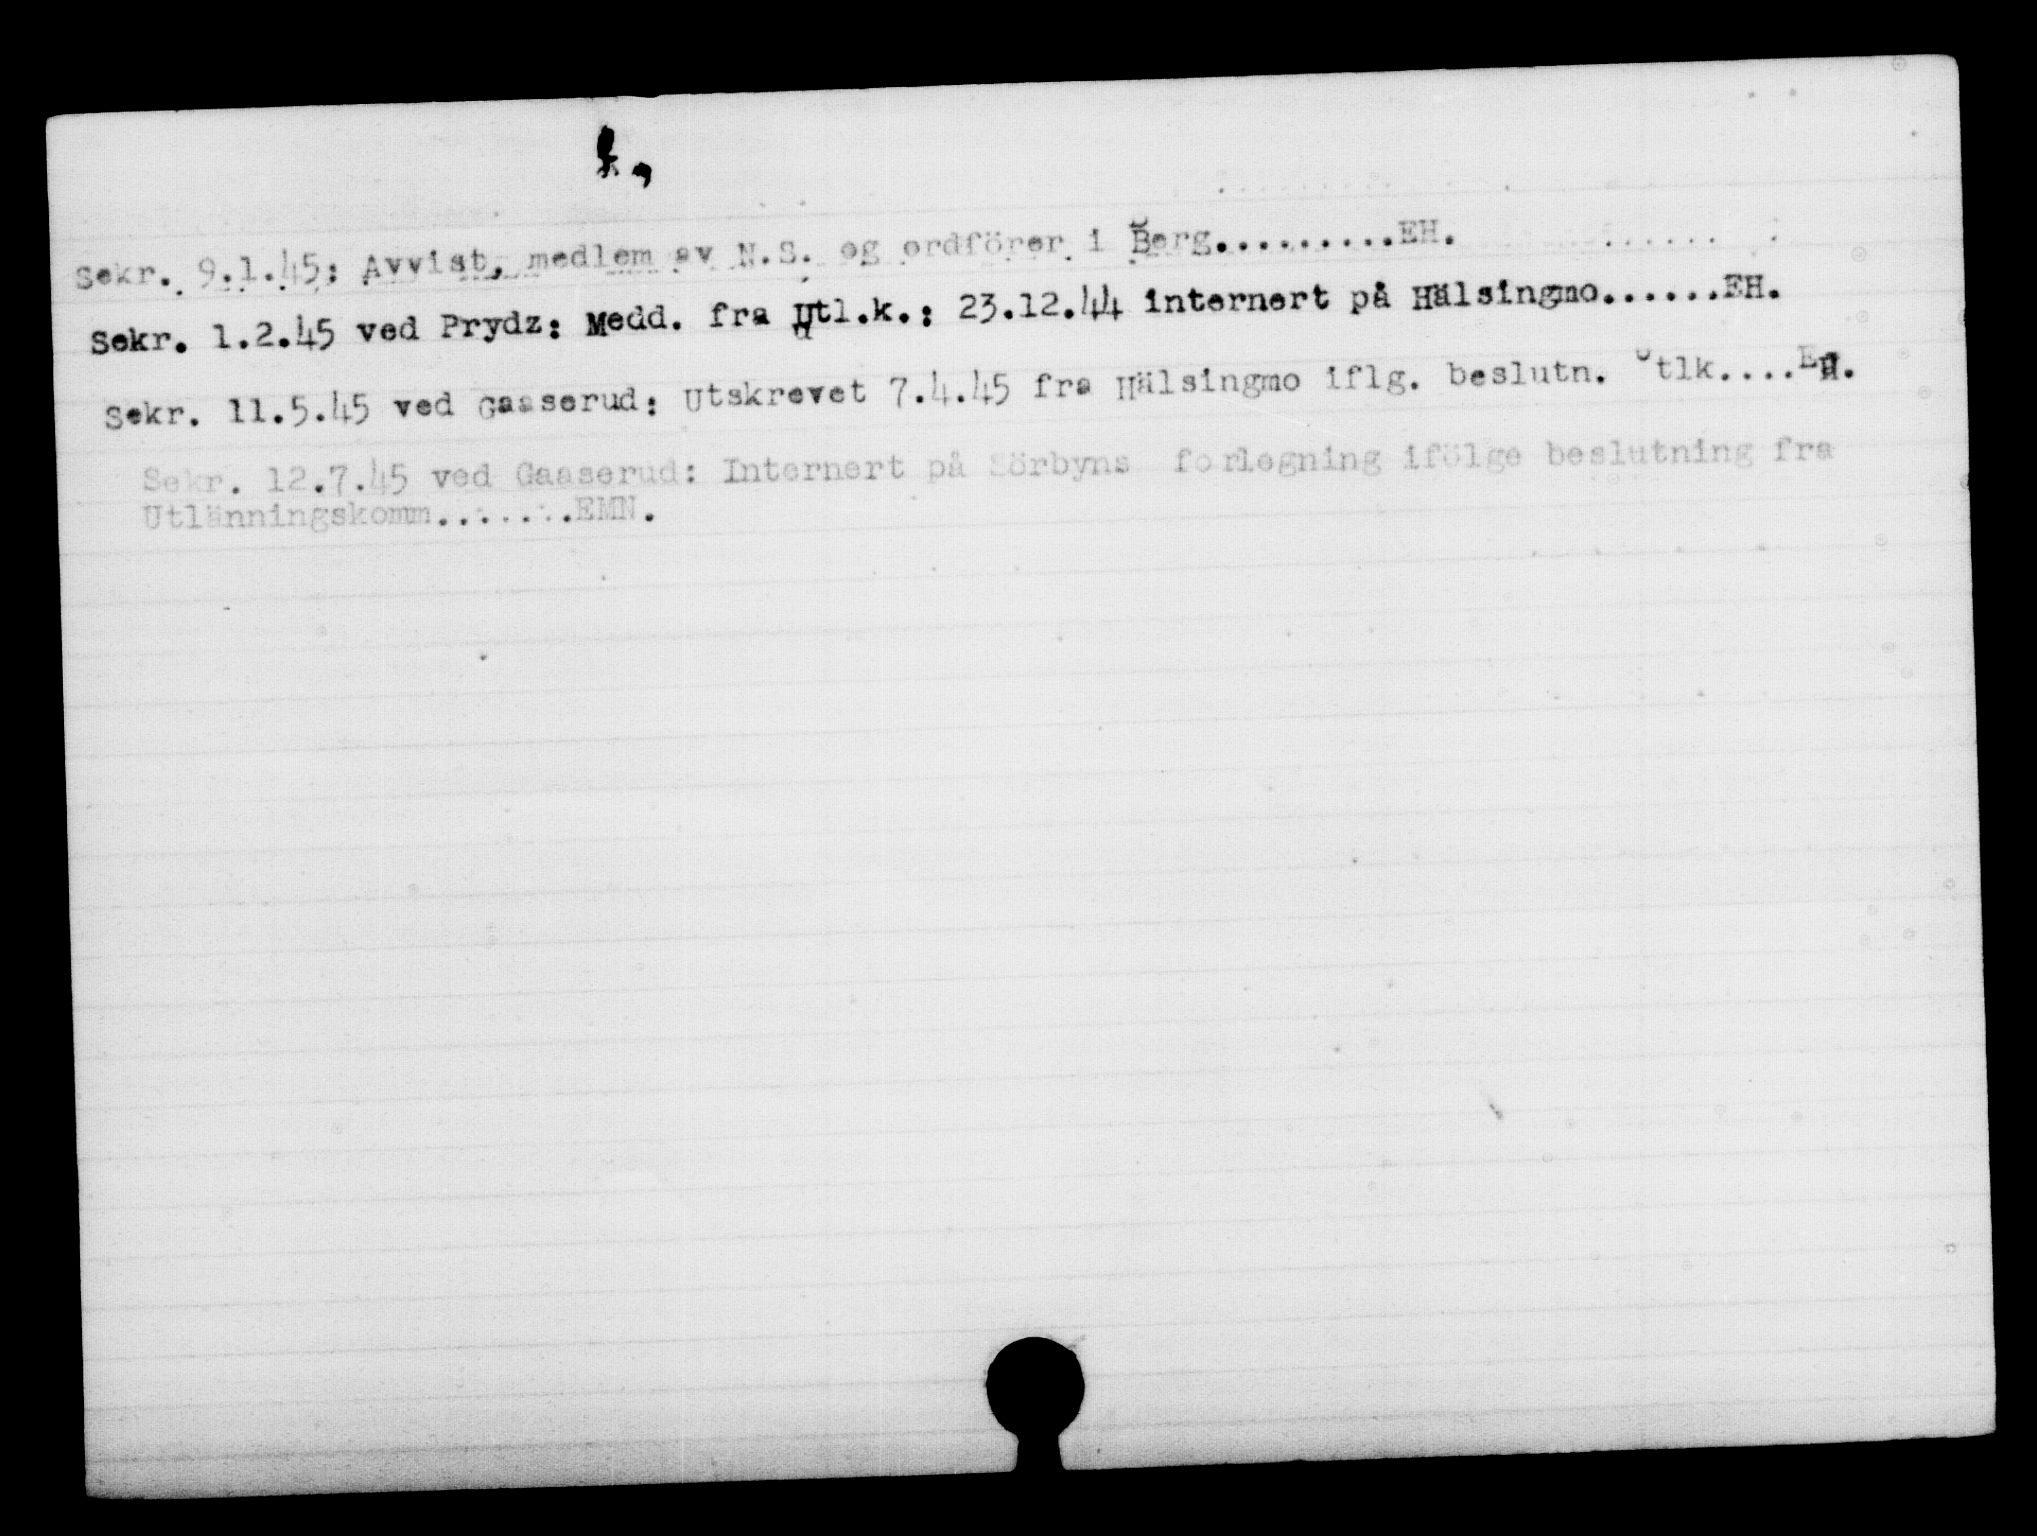 Sekr. 9.1.45: Avvist, medlem av N.S. og ordförer i Berg.........EH.
Sekr. 1.2.45 ved Prydz: Medd. fra Utl.k.: 23.12.44 internert på Hälsingmo......EH.
Sekr. 11.5.45 ved Gaaserud: Utskrevet 7.4.45 fra Hälsingmo iflg. beslutn. Utlk....EH.
Sekr. 12.7.45 ved Gaaserud: Internert på Sörbyns forlegning ifölge beslutning fra
Utlänningskomm.......EMN.